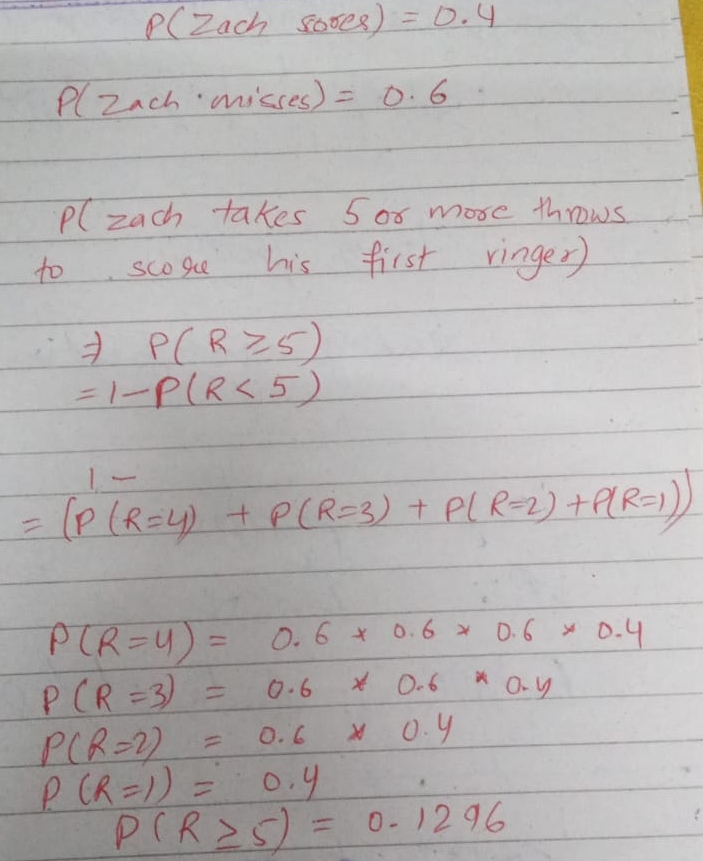 P(Zach scores) = 0.4
P(Zach misses) = 0.6
P( zach takes 5 or more throws
to score his first ringer)
⇒ P( R ≥ 5)
= 1 - P(R < 5)
1 -
= (P (R=4) + P(R=3) + P(R=2) + P(R=1))
P(R=4) = 0.6 * 0.6 * 0.6 * 0.4
P(R=3) = 0.6 * 0.6 * 0.4
P(R=2) = 0.6 * 0.4
P(R=1) = 0.4
P(R ≥ 5) = 0.1296